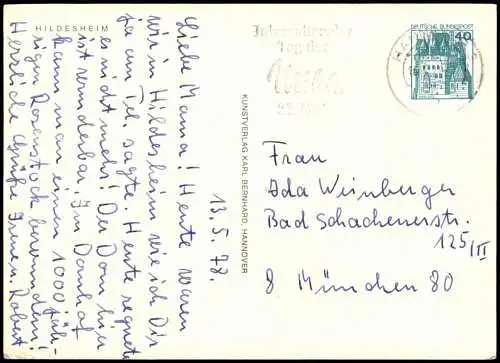 HILDESHEIM
13.5.78.
Liebe Mama! Heute waren
wir in Hildesheim wie ich Dir
ja am Tel. sagte. Heute regnete
es nicht mehr! Der Dom hier
ist wunderbar. Im Domhof
kann man einen 1000 jäh-
rigen Rosenstock bewundern!
Herzliche Grüße Irmen. Robert
KUNSTVERLAG KARL BERNHARD, HANNOVER
Internationaler
Tag der
DEUTSCHE BUNDESPOST
40
Frau
Ida Weinberger
Bad Schachenerstr.
125/II
8 München 80